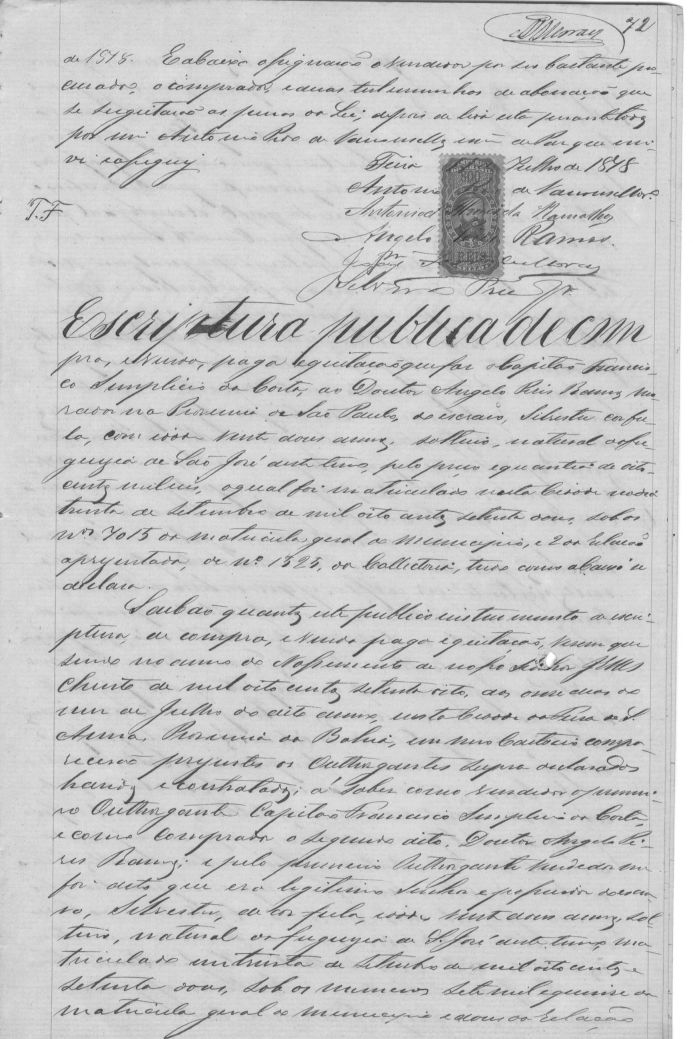 72
de 1878. E abaixo assignarão o vendedor por seu bastante pro-
curador, o comprador, e duas testemunhas de abonação que
se sugeitarão as penas da Lei; depois de lida esta perante todos
por mim Antonio de Vasconcellos que
vi e assignei
Feira Julho de 1878
Antonio de Vasconcellos
T. F
Antonio Ramalho
Angelo Ramos.
Escriptura publica de com
pra, e venda, paga e quitação que faz o Capitão Francis-
co Simplicio da Costa, ao Doutor Angelo Pires Ramos, mo-
rador na Provincia de São Paulo, do escravo, Silvestre côr fu-
la, com idade vinte dous annos, solteiro, natural da fre-
guezia de São José deste termo, pelo preço e quantia de oito
centos mil reis, o qual foi matriculado nesta Cidade no dia
trinta de setembro de mil oito centos setenta dous, sob os
nos 7015 da matricula geral do municipio, e 2 da relação
apresentada, de no. 1525, da Collectoria, tudo como abaixo se
declara.
Saibão quantos este publico instrumento de escri-
ptura, de compra, e venda paga e quitação, virem que
sendo no anno do Nascimento de nosso Senhor Jesus
Christo de mil oito centos setenta oito, aos onse dias do
mez de Julho do dito anno, nesta Cidade da Feira de S.
Anna, Provincia da Bahia, em meu Cartorio compa-
recerão presentes os Outhorgantes supra declarados
havidos e contratados; a saber como vendedor o primei-
ro Outhorgante Capitão Francisco Simplicio da Costa,
e como comprador o segundo dito, Doutor Angelo Pi-
res Ramos; e pelo primeiro Outhorgante vendedor me
foi dito que era legitimo Senhor e possuidor do escra-
vo, Silvestre, de cor fula, idade vinte dous annos, sol-
teiro, natural da freguezia de S. José deste termo ma-
triculado em trinta de Setembro de mil oito centos e
setenta dous, sob os numeros sete mil e quinse da
matricula geral do municipio e dous da relação